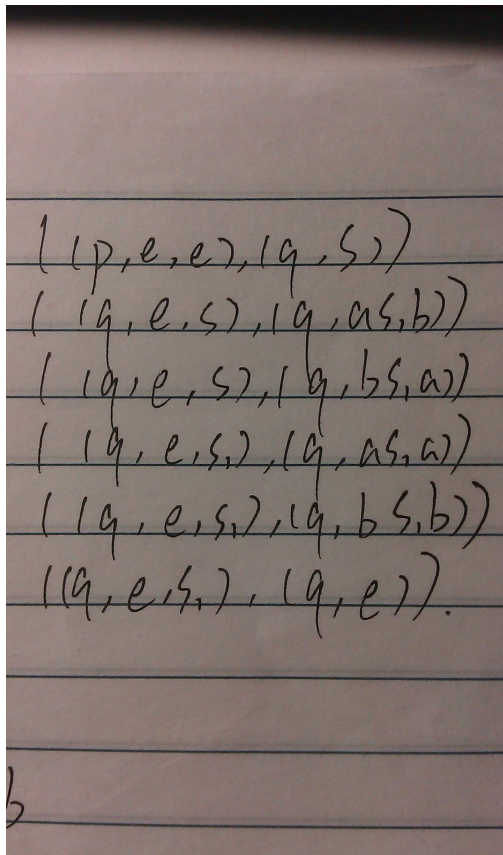 ((p,e,e),(q,S))
((q,e,S),(q,aS₁b))
((q,e,S),(q,bS₁a))
((q,e,S₁),(q,aS₁a))
((q,e,S₁),(q,bS₁b))
((q,e,S₁),(q,e)).
b